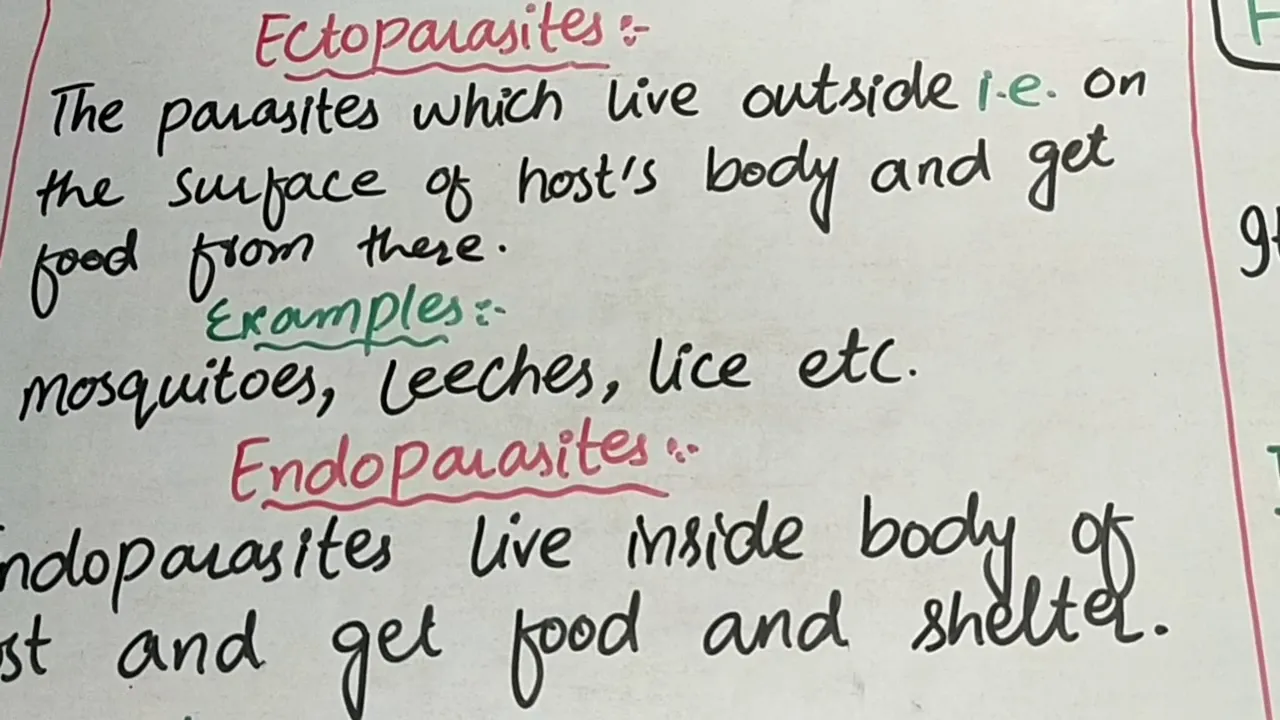 Ectoparasites:-
The parasites which live outside i.e. on
the surface of host's body and get
food from there.
Examples:-
Mosquitoes, Leeches, lice etc.
Endoparasites:-
ndoparasites live inside body of
st and get food and shelter.